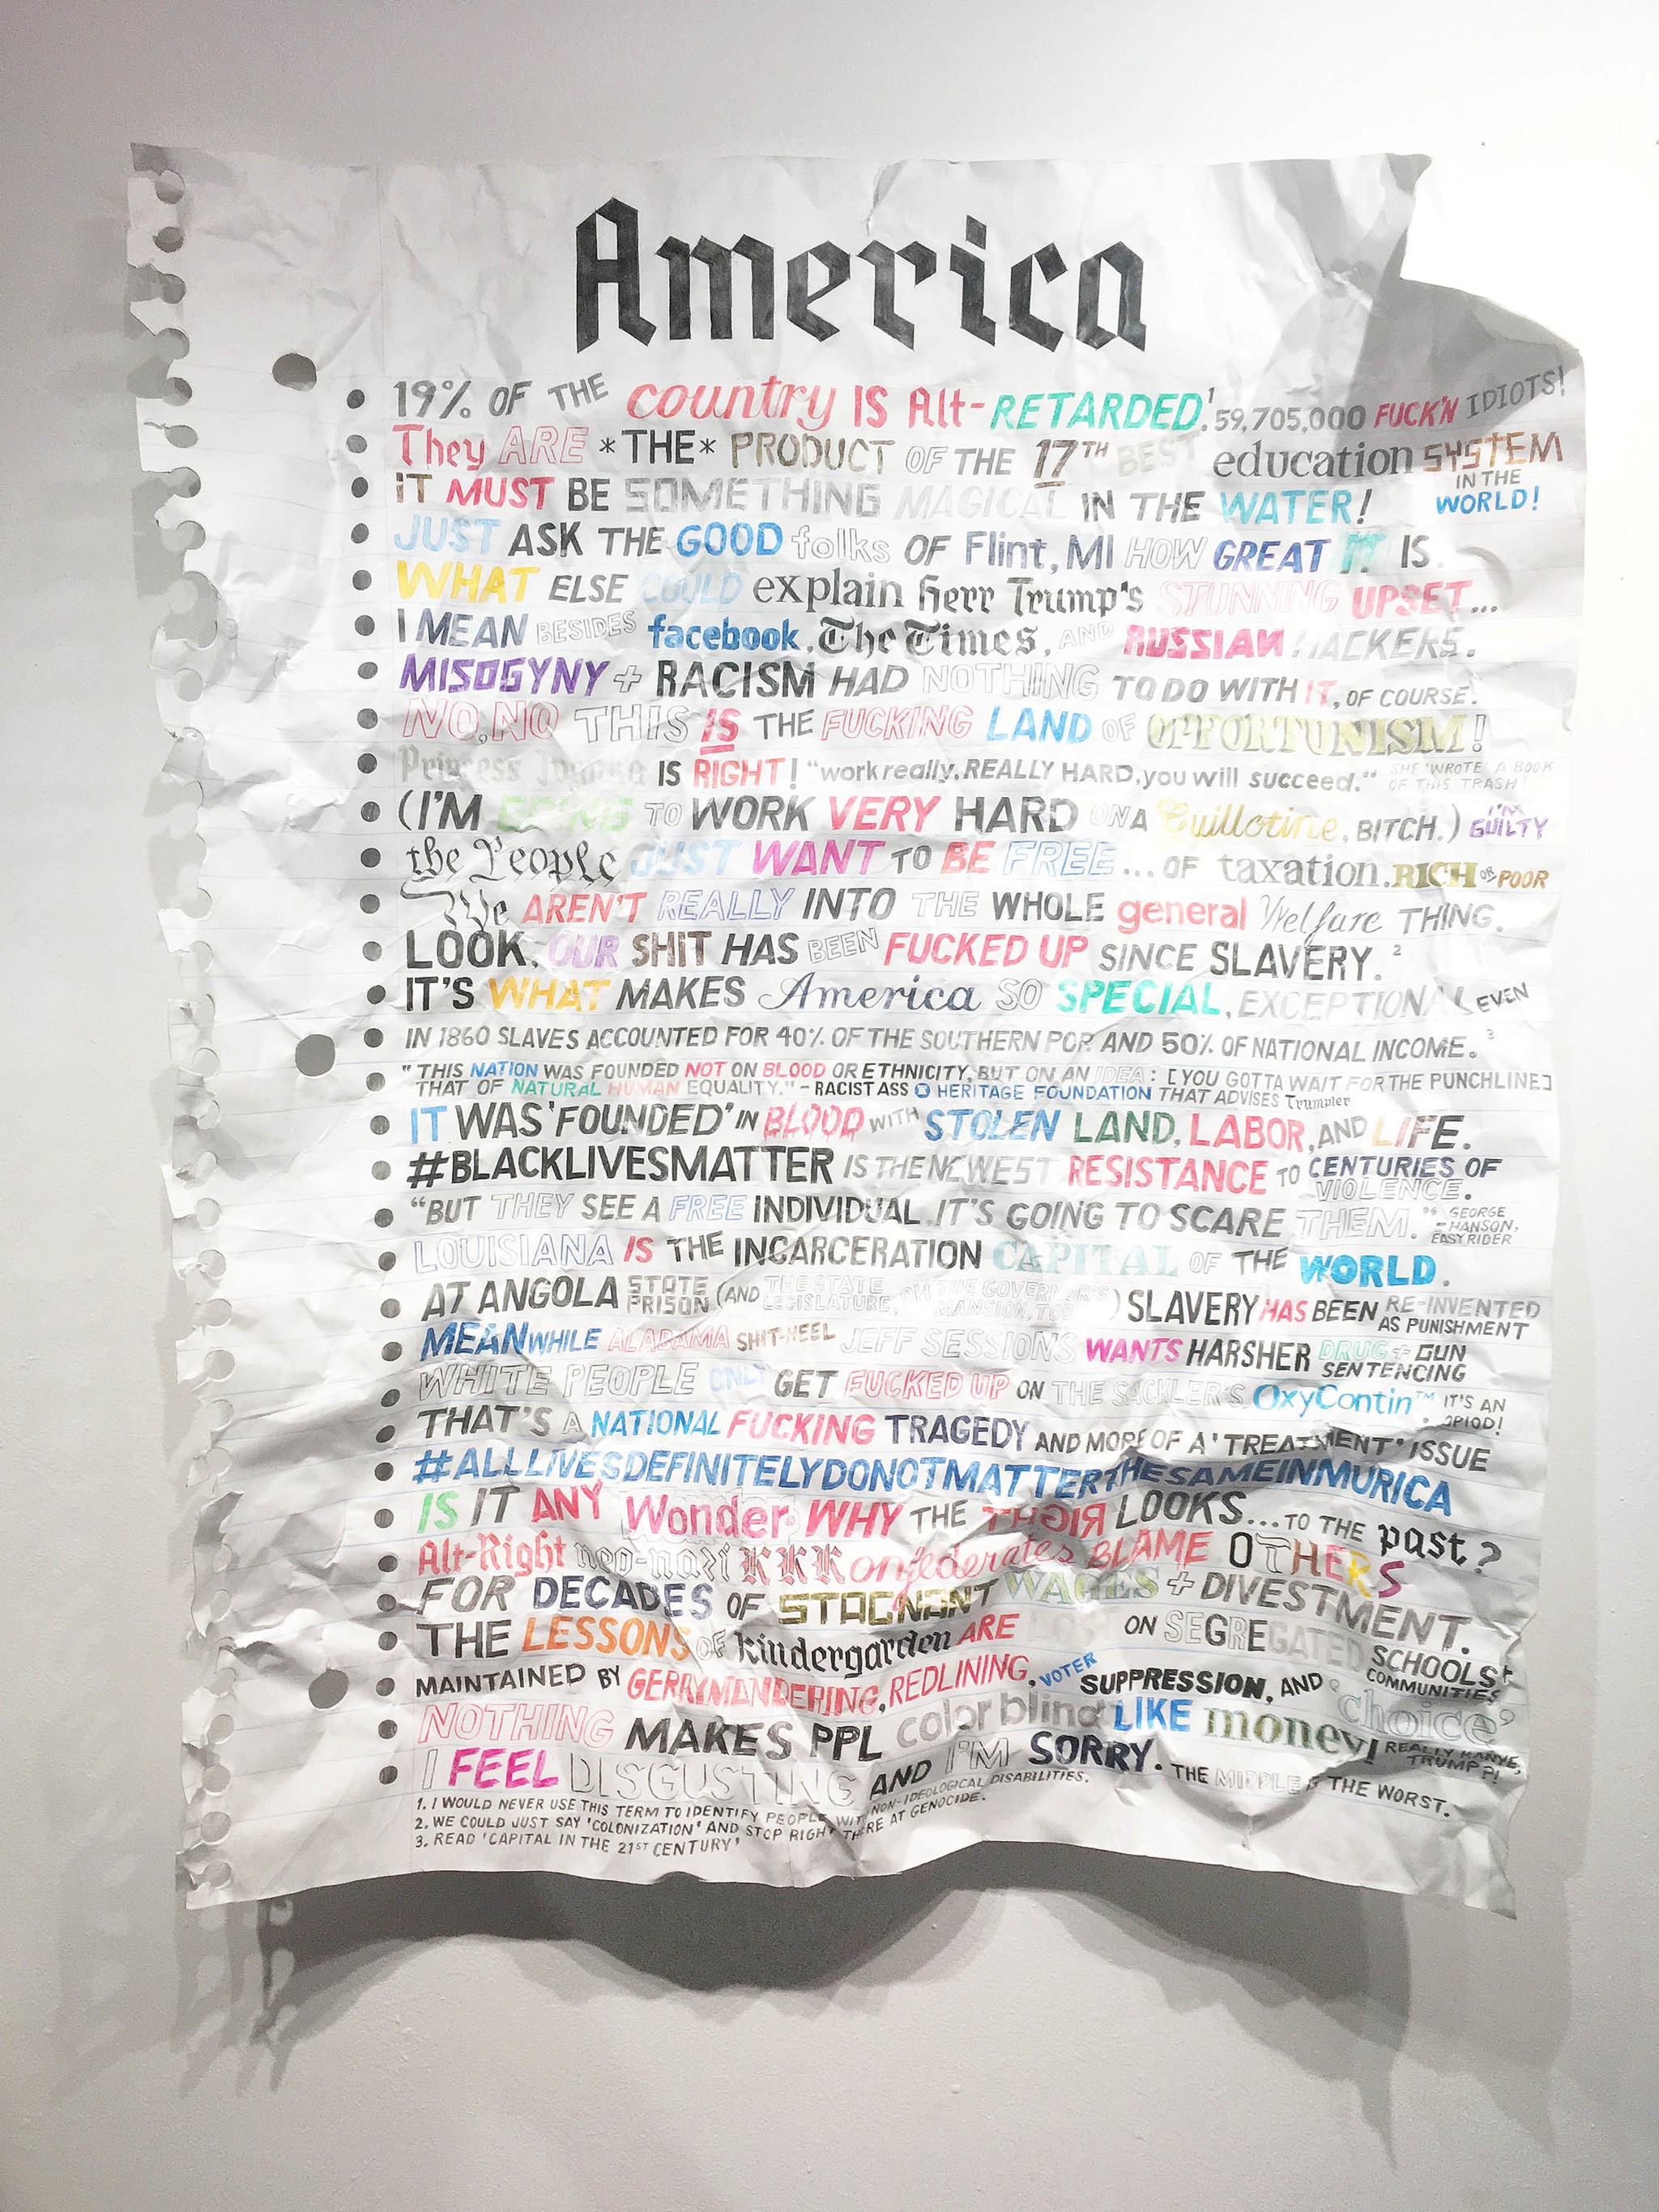 America
19% OF THE country IS Alt-RETARDED.¹ 59,705,000 FUCK'N IDIOTS!
They ARE *THE* PRODUCT OF THE 17TH BEST education SYSTEM IN THE WORLD!
IT MUST BE SOMETHING MAGICAL IN THE WATER!
JUST ASK THE GOOD folks OF Flint, MI HOW GREAT IT IS.
WHAT ELSE COULD explain Herr Trump's STUNNING UPSET...
I MEAN BESIDES facebook, The Times, AND RUSSIAN HACKERS.
MISOGYNY + RACISM HAD NOTHING TO DO WITH IT, OF COURSE.
NO, NO THIS IS THE FUCKING LAND OF OPPORTUNISM!
Princess Ivanka IS RIGHT! "work really, REALLY HARD, you will succeed." SHE 'WROTE' A BOOK OF THIS TRASH!
(I'M GOING TO WORK VERY HARD ON A Guillotine, BITCH.) I'M GUILTY
the People JUST WANT TO BE FREE... OF taxation. RICH OR POOR
We AREN'T REALLY INTO THE WHOLE general Welfare THING.
LOOK, OUR SHIT HAS BEEN FUCKED UP SINCE SLAVERY. ²
IT'S WHAT MAKES America SO SPECIAL, EXCEPTIONAL EVEN
IN 1860 SLAVES ACCOUNTED FOR 40% OF THE SOUTHERN POP. AND 50% OF NATIONAL INCOME. ³
"THIS NATION WAS FOUNDED NOT ON BLOOD OR ETHNICITY, BUT ON AN IDEA: [YOU GOTTA WAIT FOR THE PUNCHLINE]
THAT OF NATURAL HUMAN EQUALITY." - RACIST ASS @ HERITAGE FOUNDATION THAT ADVISES Trumpler
IT WAS 'FOUNDED' IN BLOOD WITH STOLEN LAND, LABOR, AND LIFE.
#BLACKLIVESMATTER IS THE NEWEST RESISTANCE TO CENTURIES OF VIOLENCE.
"BUT THEY SEE A FREE INDIVIDUAL, IT'S GOING TO SCARE THEM." - GEORGE HANSON, EASY RIDER
LOUISIANA IS THE INCARCERATION CAPITAL OF THE WORLD.
AT ANGOLA STATE PRISON (AND THE STATE LEGISLATURE, OH THE GOVERNOR'S MANSION, TOO) SLAVERY HAS BEEN RE-INVENTED AS PUNISHMENT
MEANWHILE ALABAMA SHIT-HEEL JEFF SESSIONS WANTS HARSHER DRUG + GUN SENTENCING
WHITE PEOPLE ONLY GET FUCKED UP ON THE SACKLER'S OxyContin™ IT'S AN OPIOD!
THAT'S A NATIONAL FUCKING TRAGEDY AND MORE OF A 'TREATMENT' ISSUE
#ALLLIVESDEFINITELYDONOTMATTERTHESAMEINMURICA
IS IT ANY Wonder WHY THE RIGHT LOOKS... TO THE past?
Alt-Right neo-nazi KKKonfederates BLAME OTHERS
FOR DECADES OF STAGNANT WAGES + DIVESTMENT.
THE LESSONS OF kindergarden ARE LOST ON SEGREGATED SCHOOLS + COMMUNITIES
MAINTAINED BY GERRYMANDERING, REDLINING, VOTER SUPPRESSION, AND 'choice'
NOTHING MAKES PPL color blind LIKE money! REALLY KANYE, TRUMP?!
I FEEL DISGUSTING AND I'M SORRY. THE MIDDLE IS THE WORST.
1. I WOULD NEVER USE THIS TERM TO IDENTIFY PEOPLE WITH NON-IDEOLOGICAL DISABILITIES.
2. WE COULD JUST SAY 'COLONIZATION' AND STOP RIGHT THERE AT GENOCIDE.
3. READ 'CAPITAL IN THE 21ST CENTURY'